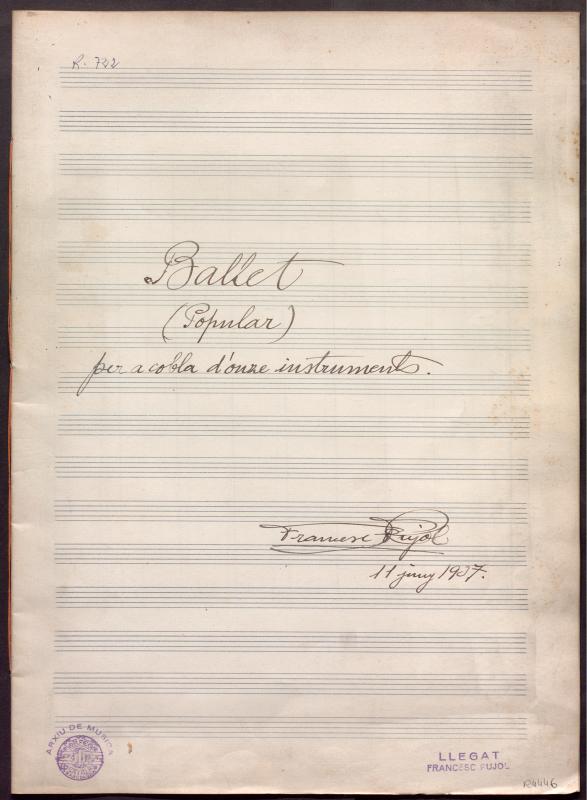 R. 722
Ballet
(Popular)
per a cobla d'onze instruments.
Francesc Pujol
11 juny 1937.
ARXIU DE MUSICA
LLEGAT
FRANCESC PUJOL
R4446